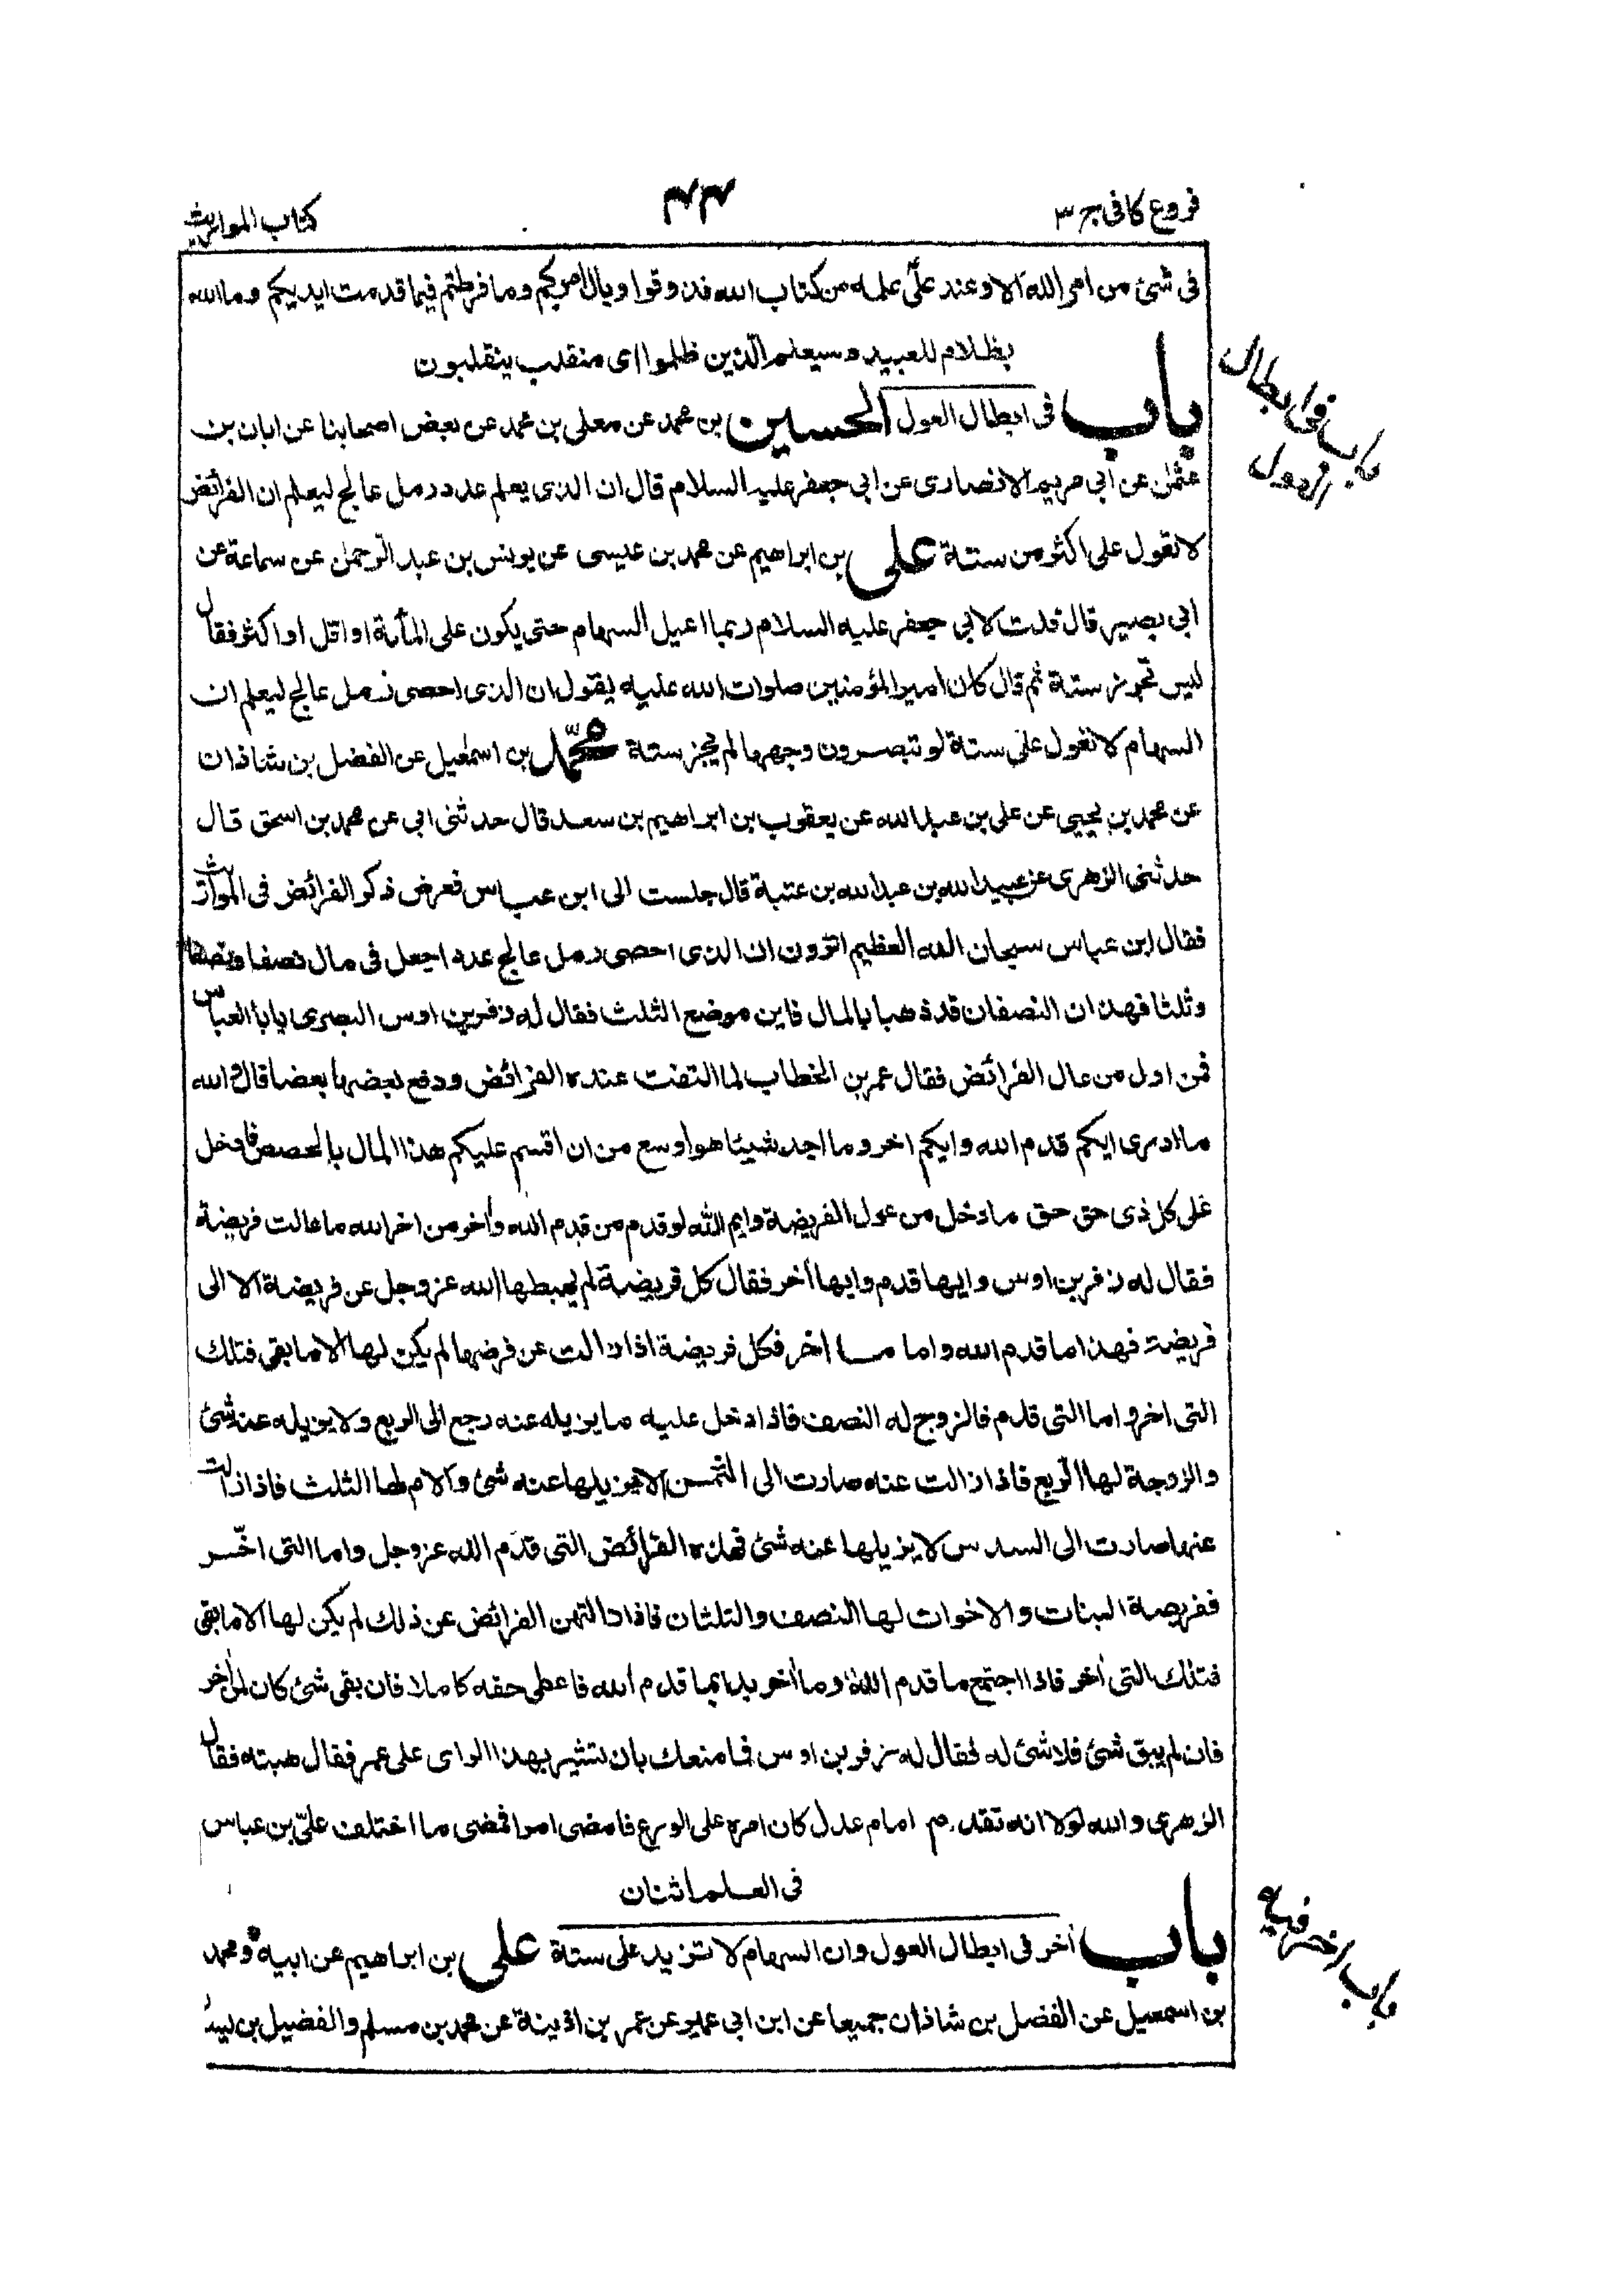 فروع کافی ج ٣
٤٣
کتاب المواریث
فی شئ من امر الله الا وعند علیّ علمه من کتاب الله فذوقوا وبال امرکم وما فرطتم فیما قدمت ایدیکم وما الله
بظلام للعبید وسیعلم الّذین ظلموا ای منقلب ینقلبون
باب فی ابطال العول الحسین بن محمد عن معلی بن محمد عن بعض اصحابنا عن ابان بن
عثمٰن عن ابی مریم الانصاری عن ابی جعفر علیه السلام قال ان الذی یعلم عدد رمل عالج لیعلم ان الفرائض
لا تعول علی اکثر من ستة علی بن ابراهیم عن محمد بن عیسی عن یونس بن عبد الرّحمٰن عن سماعة عن
ابی بصیر قال قلت لابی جعفر علیه السلام ربما اعیل السهام حتی یکون علی المأیة او اقل او اکثر فقال
لیس تجوز ستة ثم قال کان امیر المؤمنین صلوات الله علیه یقول ان الذی احصی رمل عالج لیعلم ان
السهام لا تعول علی ستة لو تبصرون وجهها لم تجز ستة محمّد بن اسمٰعیل عن الفضل بن شاذان
عن محمد بن یحیی عن علی بن عبد الله عن یعقوب بن ابراهیم بن سعد قال حدثنی ابی عن محمد بن اسحق قال
حدثنی الزهری عن عبید الله بن عبد الله بن عتبة قال جلست الی ابن عباس فعرض ذکر الفرائض فی المواریث
فقال ابن عباس سبحان الله العظیم اترون ان الذی احصی رمل عالج عددا جعل فی مال نصفا ونصفا
وثلثا فهذان النصفان قد ذهبا بالمال فاین موضع الثلث فقال له زفر بن اوس البصری یابا العباس
فمن اول من عال الفرائض فقال عمر بن الخطاب لما التفت عنده الفرائض ودفع بعضها بعضا قال والله
ما ادری ایکم قدم الله وایکم اخر وما اجد شیئا هو اوسع من ان اقسم علیکم هذا المال بالحصص فادخل
علی کل ذی حق حق ما دخل من عول الفریضة وایم الله لو قدم من قدم الله واخر من اخر الله ما عالت فریضة
فقال له زفر بن اوس وایها قدم وایها اخر فقال کل فریضة لم یهبطها الله عز وجل عن فریضة الا الی
فریضة فهذا ما قدم الله واما ما اخر فکل فریضة اذا زالت عن فرضها لم یکن لها الا ما بقی فتلک
التی اخر واما التی قدم فالزوج له النصف فاذا دخل علیه ما یزیله عنه رجع الی الربع ولا یزیله عنه شئ
والزوجة لها الرّبع فاذا زالت عنه صارت الی الثّمن لا یزیلها عنه شئ والام لها الثلث فاذا زالت
عنها صارت الی السدس لا یزیلها عنه شئ فهذه الفرائض التی قدّم الله عز وجل واما التی اخّر
ففریضة البنات والاخوات لها النصف والثلثان فاذا زالتهن الفرائض عن ذلک لم یکن لها الا ما بقی
فتلک التی اخر فاذا اجتمع ما قدم الله وما اخر بدئ بما قدم الله فاعطی حقه کاملا فان بقی شئ کان لمن اخر
فان لم یبق شئ فلا شئ له فقال له زفر بن اوس فما منعک بان تشیر بهذا الرای علی عمر فقال هبته فقال
الزهری والله لولا انه تقدمه امام عدل کان امره علی الورع فامضی امرا فمضی ما اختلف علیّ بن عباس
فی العلم اثنان
باب اخر فی ابطال العول وان السهام لا تزید علی ستة علی بن ابراهیم عن ابیه ومحمد
بن اسمعیل عن الفضل بن شاذان جمیعا عن ابن ابی عمیر عن عمر بن اذینة عن محمد بن مسلم والفضیل بن یسار
باب فی ابطال
العول
باب اخر فیه